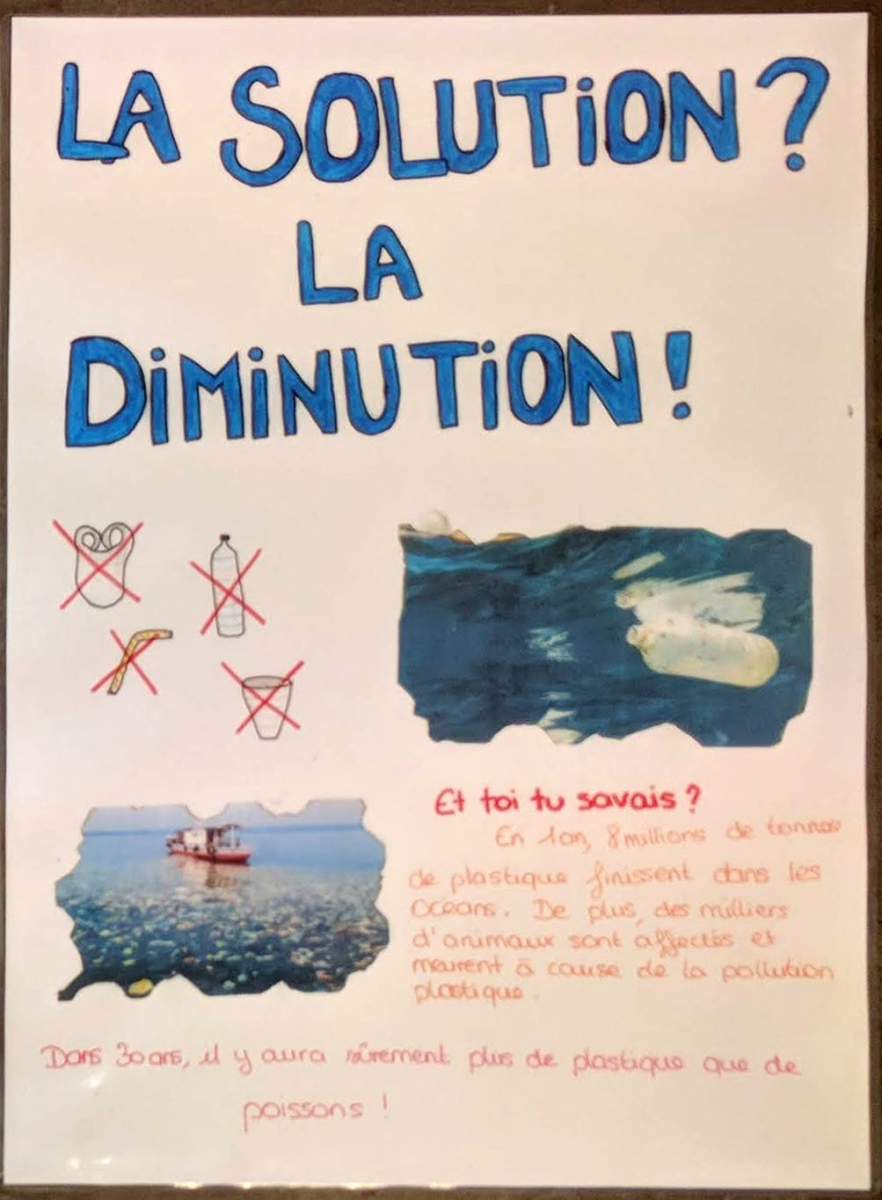 LA SOLUTiON?
LA
DiMiNUTiON!
Et toi tu savais ?
En 1an, 8millions de tonnes
de plastique finissent dans les
océans. De plus, des milliers
d'animaux sont affectés et
meurent à cause de la pollution
plastique.
Dans 30ans, il y aura sûrement plus de plastique que de
poissons !